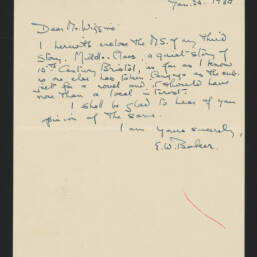 Jan. 30. 1930
Dear Mr. Wiggins
I herewith enclose the MS. of my third
story, a quiet story of
15th Century Bristol, as far as I know
no one else has taken Canynges as the sub-
ject for a novel and it should have
more than a local interest.
I shall be glad to hear of your
opinion of the same.
I am yours sincerely,
E.W. Barker.